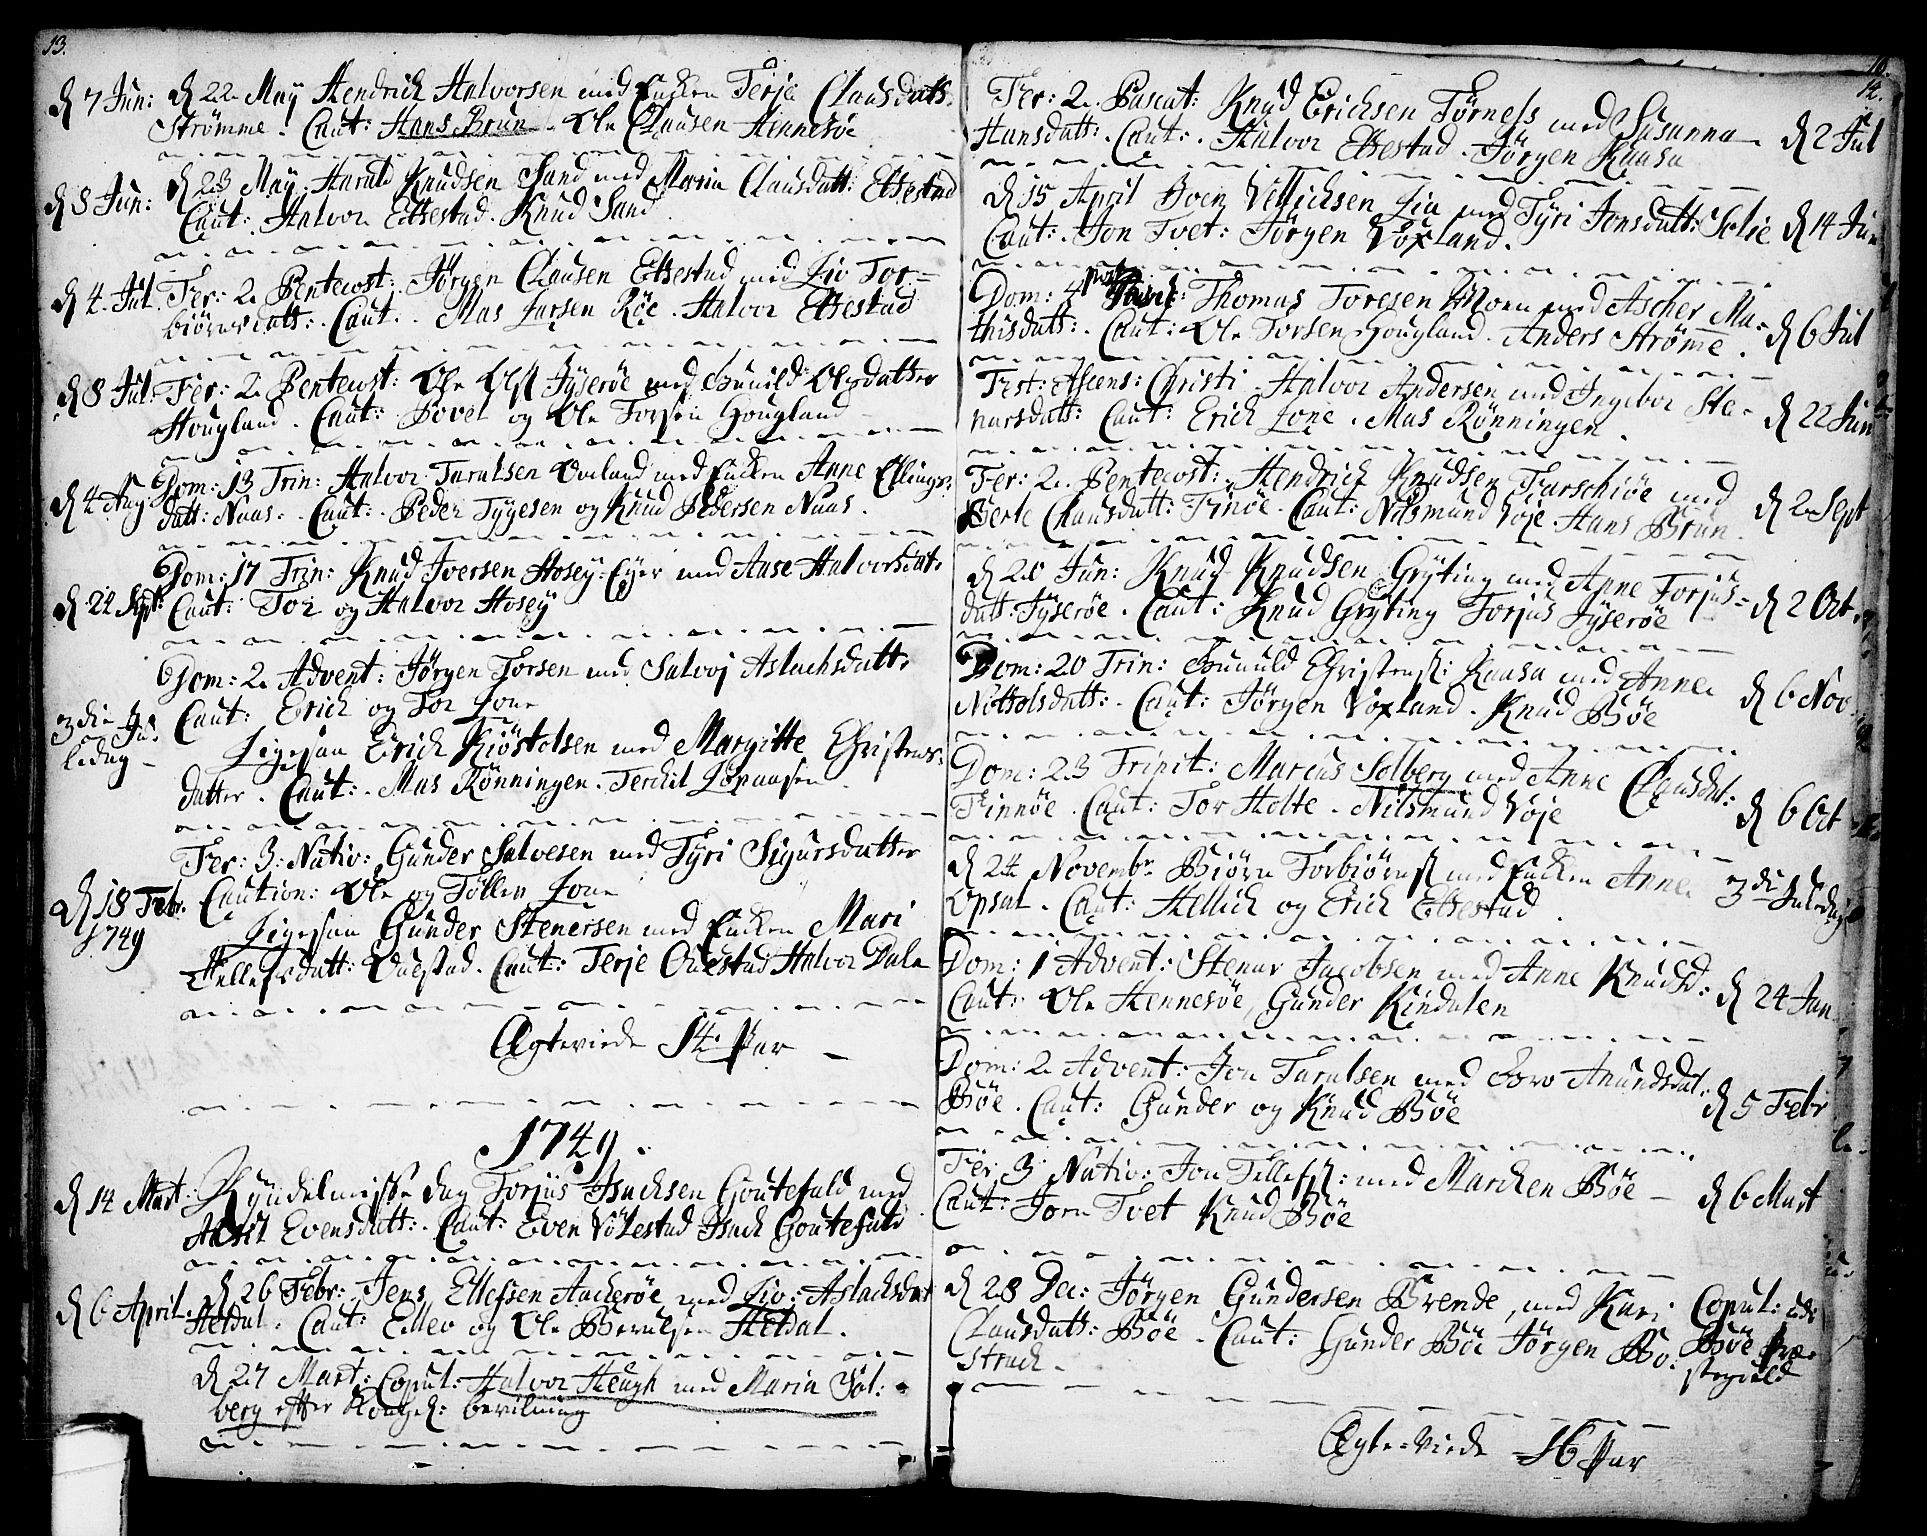 13.
d 7 Jun: d 22 May Hendrich Halvorsen med Enken Terje Clausdatt:
Strømme. Caut: Hans Brun. Ole Clausen Hennesøe
d 8 Jun: d 23 May. Harald Knudsen Sand med Maria Clausdatt: Ettestad
Caut: Halvor Ettestad. Knud Sand
d 4 Jul. Fer: 2 Pentecost: Jørgen Clausen Ettestad med Liv Tor-
biørnsdatt: Caut. Mas Larsen Röe. Halvor Ettestad
d 8 Jul: Fer: 2 Pentecost: Ole Jyserøe med Gunild Olsdatter
Hougland. Caut: Povel og Ole Torsen Hougland
d 4 Aug Dom: 13 Trin: Halvor Taralsen Omland med Enken Anne Ellings-
datt: Naas. Caut: Peder Tygesen og Knud Pedersen Naas.
Dom: 17 Trin: Knud Iversen Hosey-Eyer med Aase Halvorsdat:
d 24 Sept: Caut: Tor og Halvor Hosey
Dom: 2 Advent: Jørgen Torsen med Salvoj Aslachsdatt:
3die Ju- Caut: Erich og Tor Lone
ledag - Ligesaa Erich Kiöstolsen med Margitte Christens-
datter. Caut: Mas Rönningen. Terchil
Fer: 3: Nativ: Gunder Salvesen med Tyri Sigursdatter
d 18 Febr. Caution: Ole og Töllev Lone
1749 Ligesaa Gunder Stenersen med Enken Mari
Tellefsdatt: Ouestad. Caut: Terje Ouestad Halvor Dale
Ægteviede 14 Par
1749.
d 14 Mart: Kyndelmisse dag Torjus Isachsen Goutefald med
Evensdatt: Caut: Even Völestad Isach Goutefald
d 6 April. d 26 Febr: Jens Ellefsen Aacherøe med Liv: Aslachsdat
Heldal. Caut: Ellev og Ole Heldal.
d 27 Mart: Copul: Halvor Heugh med Maria Sol:
berg efter Kongel: bevilning
14.
Fer: 2 Pascat: Knud Erichsen Törness med Susanna
Hansdatt: Caut: Halvor Ettestad. Jörgen Kaasa d 2 Jul
d 15 April Boen Vellichsen Lia med Tyri Jonsdatt: Solie d 14 Jun
Caut: Jon Tvet: Jörgen Voxland.
Dom: 4 post Pasch: Thomas Toresen Moen med Ascher Ma-
thisdatt: Caut: Ole Torsen Hougland. Anders Strömme. d 6 Jul
Fest: Ascens: Christi. Halvor Andersen med Ingebor Ste-
narsdatt: Caut: Erich Lone. Mas Rönningen. d 22 Jun
Fer: 2 Pentecost: Hendrich Knudsen Farschiöe med
Berte Clausdatt: Finöe. Caut: Nilsmund Voje. Hans Brun. d 2 Sept
d 20 Jun: Knud Knudsen Gryting med Anne Torjus-
datt: Jyseröe. Caut: Knud Gryting Torjus Jyseröe d 2 Oct.
Dom: 20 Trin: Gunuld Christens: Kaasa med Anne
Nottolsdatt: Caut: Jörgen Voxland. Knud Böe d 6 Nov
Dom: 23 Trinit: Marcus Solberg med Anne Clausdat:
Finnöe. Caut: Tor Holte. Nilsmund Voje d 6 Oct
d 24 Novembr Biörn Torbiörns med Enken Anne 3die Juledag
Opsal. Caut: Hellich og Erich Ettestad.
Dom: 1 Advent: Stenar Jacobsen med Anne Knuds D:
Caut: Ole Hennesöe, Gunder Kindalen d 24 Jan
Dom: 2 Advent: Jon Taralsen med Toro Anundsdat:
Böe. Caut: Gunder og Knud Böe d 5 Febr
Fer: 3 Nativ: Jon Tellefs: med Marchen Böe -
Caut: Jorn Tvet Knud Böe d 6 Mart
d 28 Dec: Jörgen Gundersen Brende, med Kari Copul: udi
Clausdatt: Böe. Caut: Gunder Böe Jörgen Bo: Böe Præ-
strach. stegield
Ægte-Viede 16 Par